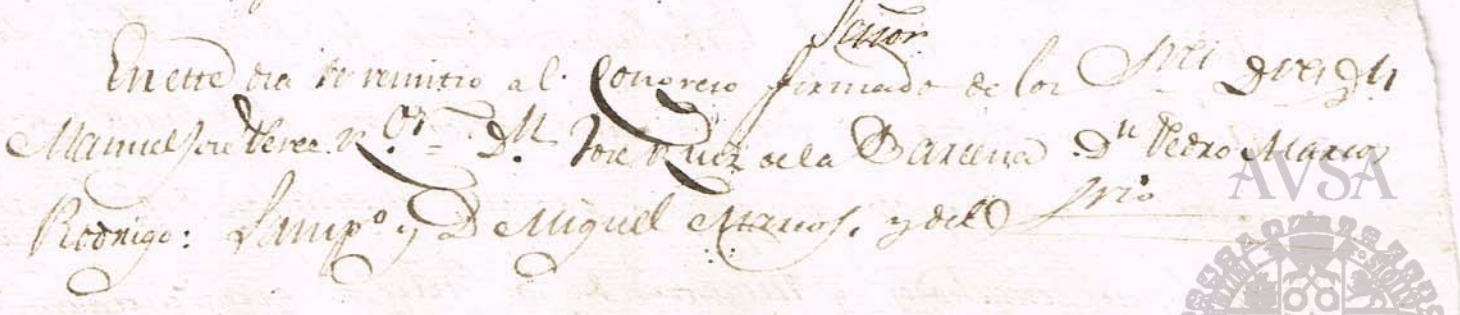 Señor
En este dia se remitio al Congreso firmado de los Sres Dres Dn
Manuel Jose Perez Dn Jose Ruiz de la Barcena Dn Pedro Marcos
Rodrigo: Lampo y D Miguel Marcos, y del Srio
AVSA